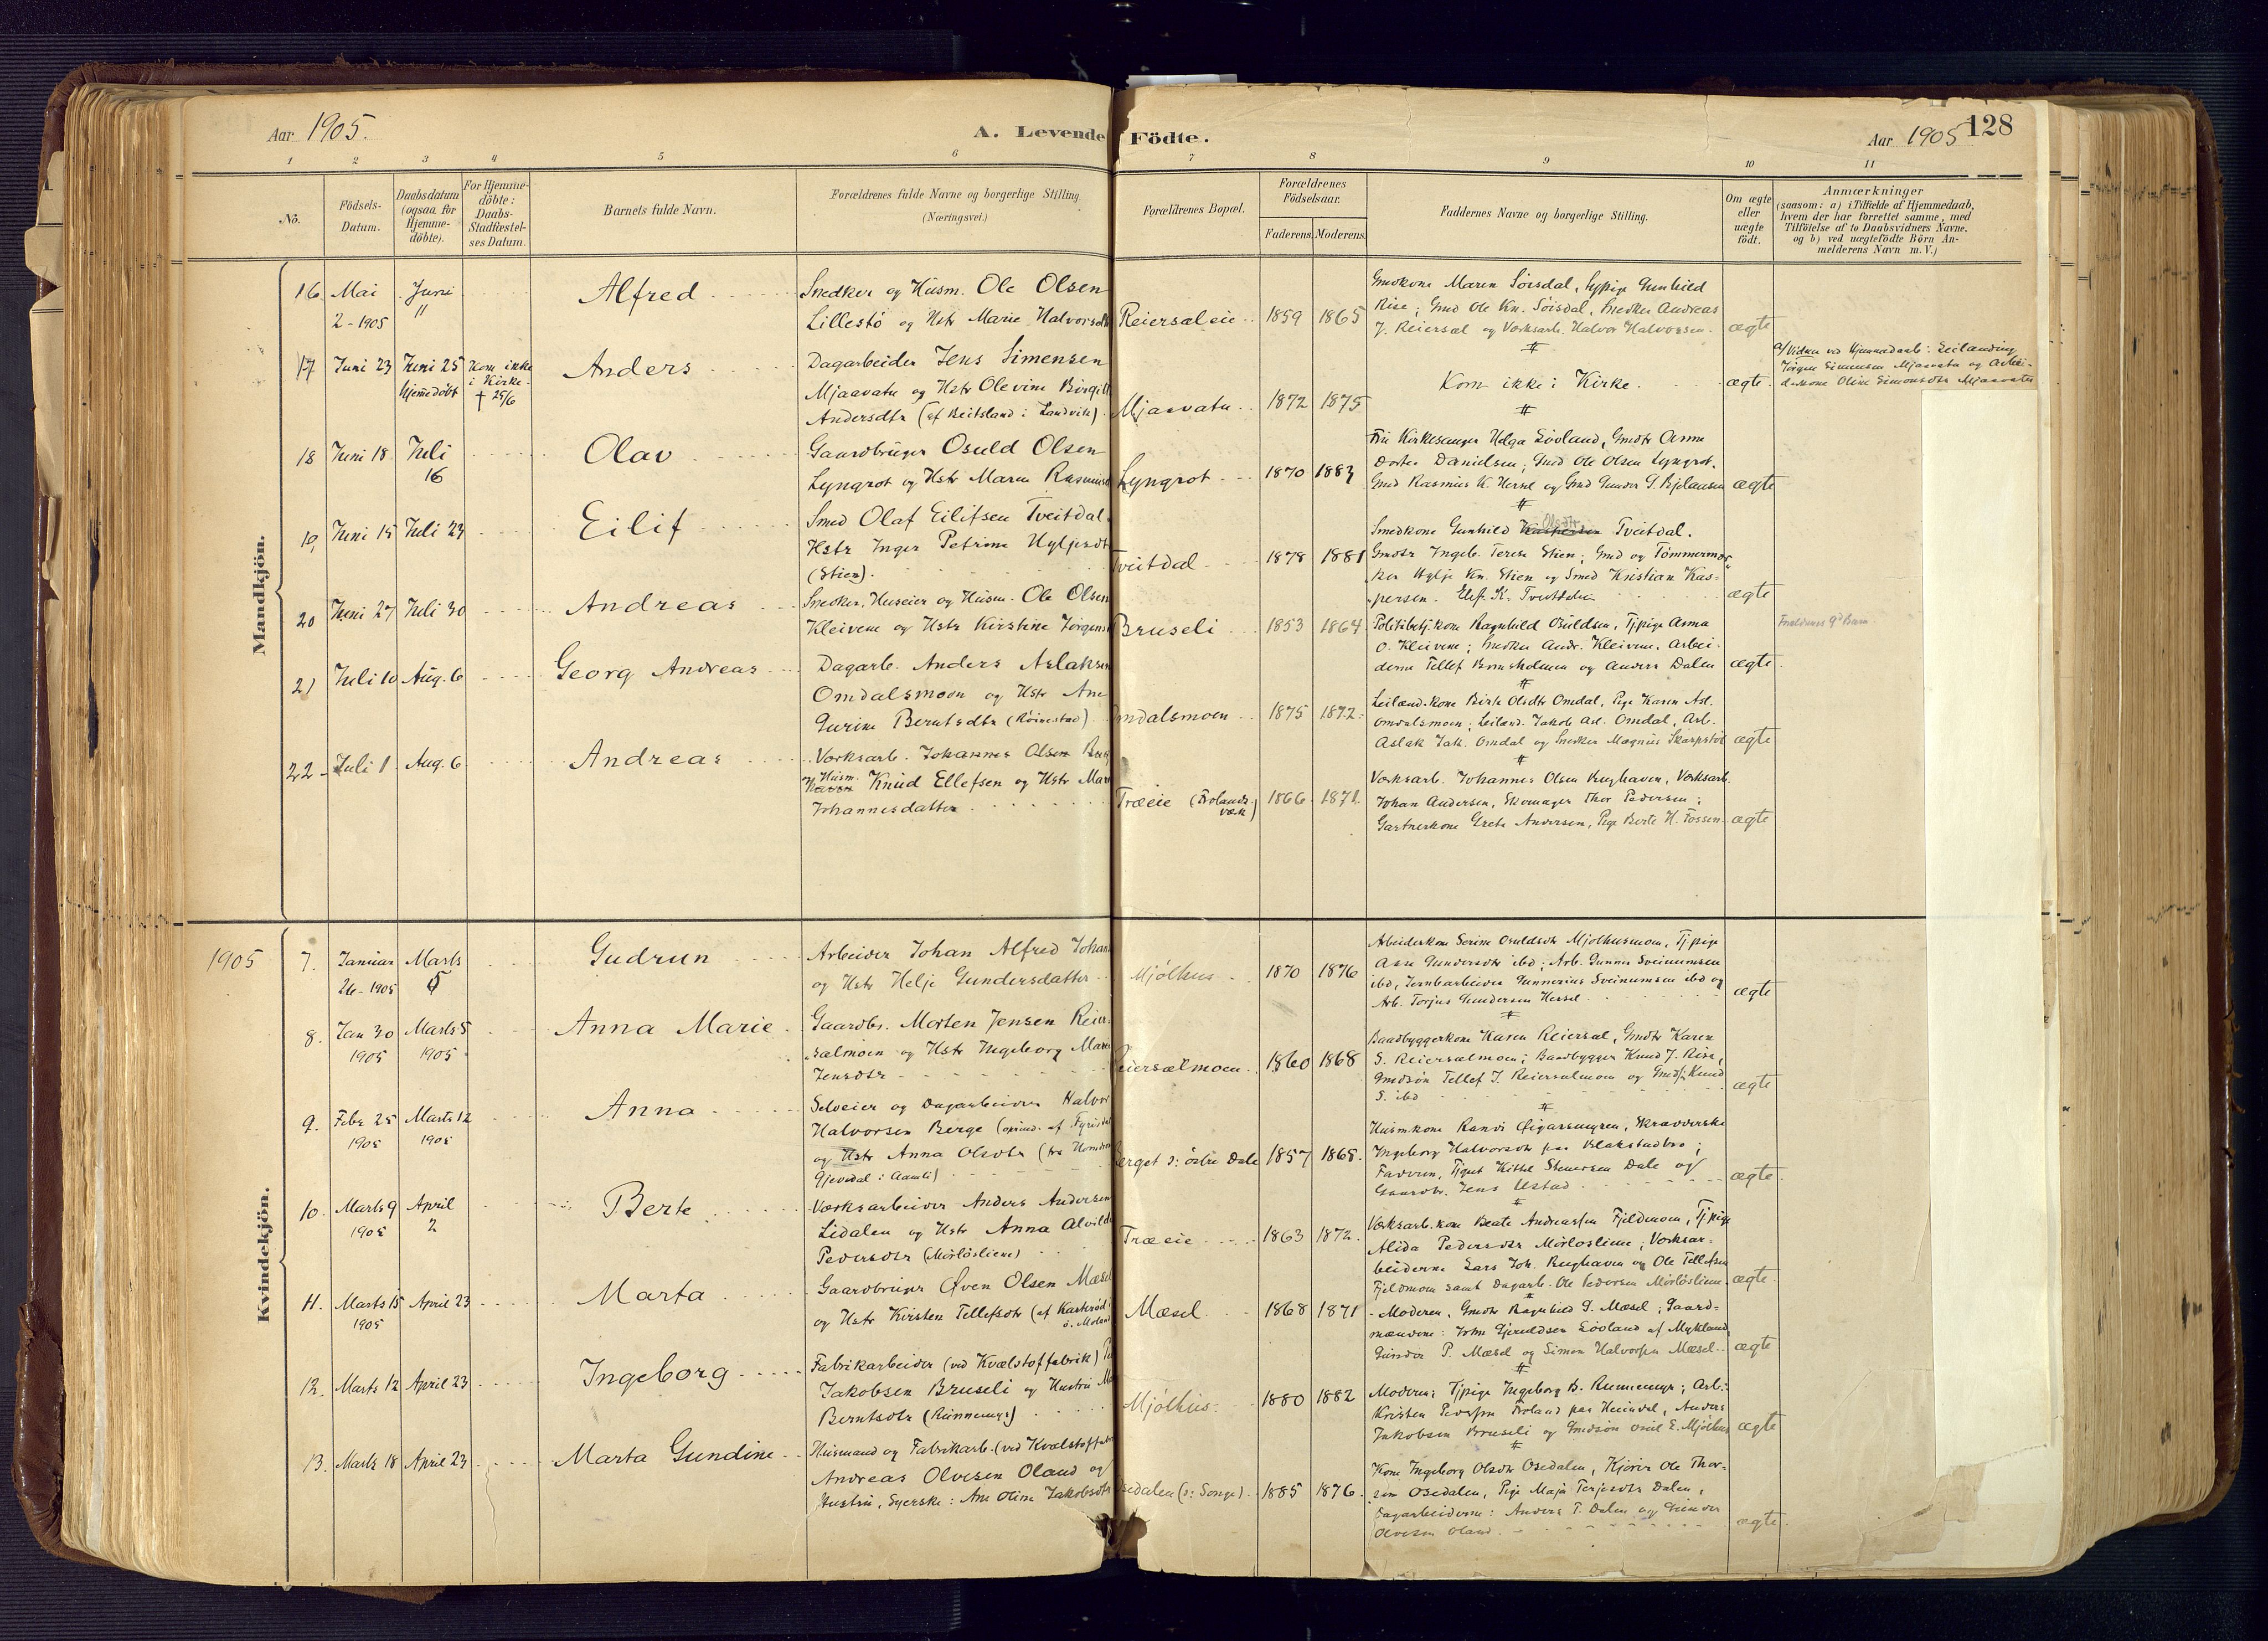 Aar 1905.
A. Levende Födte.
Aar 1905
128
1 2 3 4 5 6 7 8 9 10 11
No.
Födsels-
Datum.
Daabsdatum
(ogsaa for
Hjemme-
döbte).
For Hjemme-
döbte:
Daabs-
Stadfæstel-
ses Datum.
Barnets fulde Navn.
Forældrenes fulde Navne og borgerlige Stilling.
(Næringsvei.)
Forældrenes Bopæl.
Forældrenes
Födselsaar.
Faderens. Moderens.
Faddernes Navne og borgerlige Stilling.
Om ægte
eller
uægte
födt.
Anmærkninger
(saasom: a) i Tilfælde af Hjemmedaab,
hvem der har forrettet samme, med
Tilföielse af to Daabsvidners Navne.
og b) ved uægtefödte Börn An-
melderens Navn m. V.)
Mandkjön.
16. Mai
2 - 1905
Juni
11
Alfred
Snedker og Husm. Ole Olsen
Lillestö og Hstr Marie
Reiersøleie
1859 1865
Gmdkone Maren Söisdal, Gunhild
Rise; Gmd Ole Kn. Söisdal, Snedker Andreas
J. Reiersøl og Værksarb. Halvor Halvorsen.
ægte
17 Juni 23
Juni 25
hjemmedöbt
Kom ikke
i Kirke.
† 25/6
Anders
Dagarbeider Jens Simensen
Mjaavatn og Hstr Olevine
Andersdtr (af Beitsland i Landvik)
Mjaavatn
1872 1875
Kom ikke i Kirke.
ægte.
a/ Vidner ved Hjemmedaab: Leilænding
Jörgen Simensen Mjaavatn og Arbei-
derkone Oline Simonsdtr Mjaavatn
18 Juni 18
Juli
16
Olav
Gaardbruger Osuld Olsen
Lyngrot og Hstr Maren
Lyngrot
1870 1883
Fru Kirkesanger Helga Lövland, Gmdtr Anne
Dortea Danielsen; Gmd Ole Olsen Lyngrot.
Gmd Rasmus K. Hersel og Gmd Gunder
ægte
19, Juni 15 Juli 23
Eilif
Smed Olaf Eilifsen Tveitdal.
Hstr Inger Petrine
(Stien).
Tveitdal
1878 1881
Smedkone Gunhild Olsdtr Tveitdal.
Gmdtr Ingeb. Terese Stien; Gmd og
Kn. Stien og Smed Kristian Kas-
persen. Elef. K. Tveitdalen
ægte
20 Juni 27 Juli 30
Andreas
Snedker, Huseier og Husm. Ole Olsen
Kleivene og Hstr Kirstine
Bruseli
1853 1864
Politibetj.kone Ragnhild Osuldsen, Tjpige Anna
O. Kleivene; Snedker Andr. Kleivene, Arbei-
derne Tellef Bomsholmen og Anders Dalen
ægte
21 Juli 10 Aug. 6
Georg Andreas
Dagarb. Anders Aslaksen
Omdalsmoen og Hstr Ane
Gurine Berntsdtr (Röinestad)
Omdalsmoen
1875 1872.
Leilænd.kone Birte Olsdtr Omdal, Pige Karen Asl.
Omdalsmoen; Leilænd. Jakob Asl. Omdal, Arb.
Aslak Jak. Omdal og Snedker Magnus
ægte
22 Juli 1 Aug. 6
Andreas
Værksarb. Johannes Olsen
Husm. Knud Ellefsen og Hstr
Johannesdatter
Træeie (Frolands
værk)
1866 1871.
Værksarb. Johannes Olsen Rughaven, Værksarb.
Johan Andersen, Skomager Thor Pedersen;
Gartnerkone Grete Andersen, Pige Berte H. Fossen
ægte
Kvindekjön.
1905
7. Januar
26 - 1905
Marts
5
Gudrun
Arbeider Johan Alfred
og Hstr Helje Gundersdatter
Mjölhus
1870 1876
Arbeiderkone Serine Osuldsdtr Mjölhusmoen, Tjpige
Aase Gundersdtr ibd; Arb. Gunnar Sveinumsen
ibd, Jernbarbeider Gunnerius Sveinumsen ibd og
Arb. Torjus Gundersen Hersel
ægte
8. Jan 30
1905
Marts 5
1905
Anna Marie
Gaardbr. Morten Jensen Reier-
sølmoen og Hstr Ingeborg
Jensdtr
Reiersølmoen
1860 1868
Baadbyggerkone Karen Reiersøl, Gmdtr Karen
S. Reiersølmoen; Baadbygger Knud J. Rise,
Gmdsön Tellef J. Reiersølmoen og Gmds. Knud
S. ibd
ægte
9. Febr 25
1905
Marts 12
1905
Anna
Selveier og Dagarbeider Halvor
Halvorsen Berge
og Hstr Anna Olsdtr
Gjevedal i Aamli)
Berget i: östre Dale
1857 1865.
Husmkone Randi Skrædderske
Ingeborg Halvorsdtr paa Blakstadbro;
Faderen, Tjgut Kittel Stenersen Dale og
Gaardbr. Jens Ustad
ægte
10. Marts 9
1905
April
2
Berte
Værksarbeider Anders Andersen
Lidalen og Hstr Anna Alvilde
Pedersdtr (Mörlösliene)
Træeie
1863 1872.
Værksarb.kone Beate Andreassen Fjeldmoen, Tjpige
Alida Pedersdtr Mörlösliene; Værksar-
beiderne Lars Joh. Rughaven og Ole Tellefsen
Fjeldmoen samt Dagarb. Ole Pedersen Mörlösliene.
ægte
11. Marts 15
1905
April 23
Marta
Gaardbruger Öven Olsen Mæsel
og Hstr Kirsten Tellefsdtr
Mæsel
1868 1871
Moderen, Gmdtr Ragnhild G. Mæsel; Gaard-
mændene: John Gjeruldsen Lövland af Mykland,
Gunder P. Mæsel og Simon Halvorsen Mæsel.
ægte
12. Marts 12 April 23
Ingeborg
Fabrikarbeider (ved Kvælstoffabrik)
Jakobsen Bruseli og Hustru
Berntsdtr (Rünnemyr)
Mjölhus.
1880 1882
Moderen; Tjpige Ingeborg B. Runnemyr; Arb.:
Kristen Pedersen Froland paa Heimdal, Anders
Jakobsen Bruseli og Gmdsön Emil E. Mjölhus
ægte
13. Marts 18 April 23
Marta Gundine
Husmand og Fabrikarb. (ved
Andreas Olvesen Oland og
Hustru, Syerske: Ane Oline Jakobsdtr
Osedalen (i: Songe).
1885 1876.
Kone Ingeborg Olsdtr Osedalen, Kjörer Ole Thor-
sen Osedalen, Pige Maja Terjesdtr Dalen,
Dagarbeiderne: Anders T. Dalen og Gunder
Olvesen Oland.
ægte